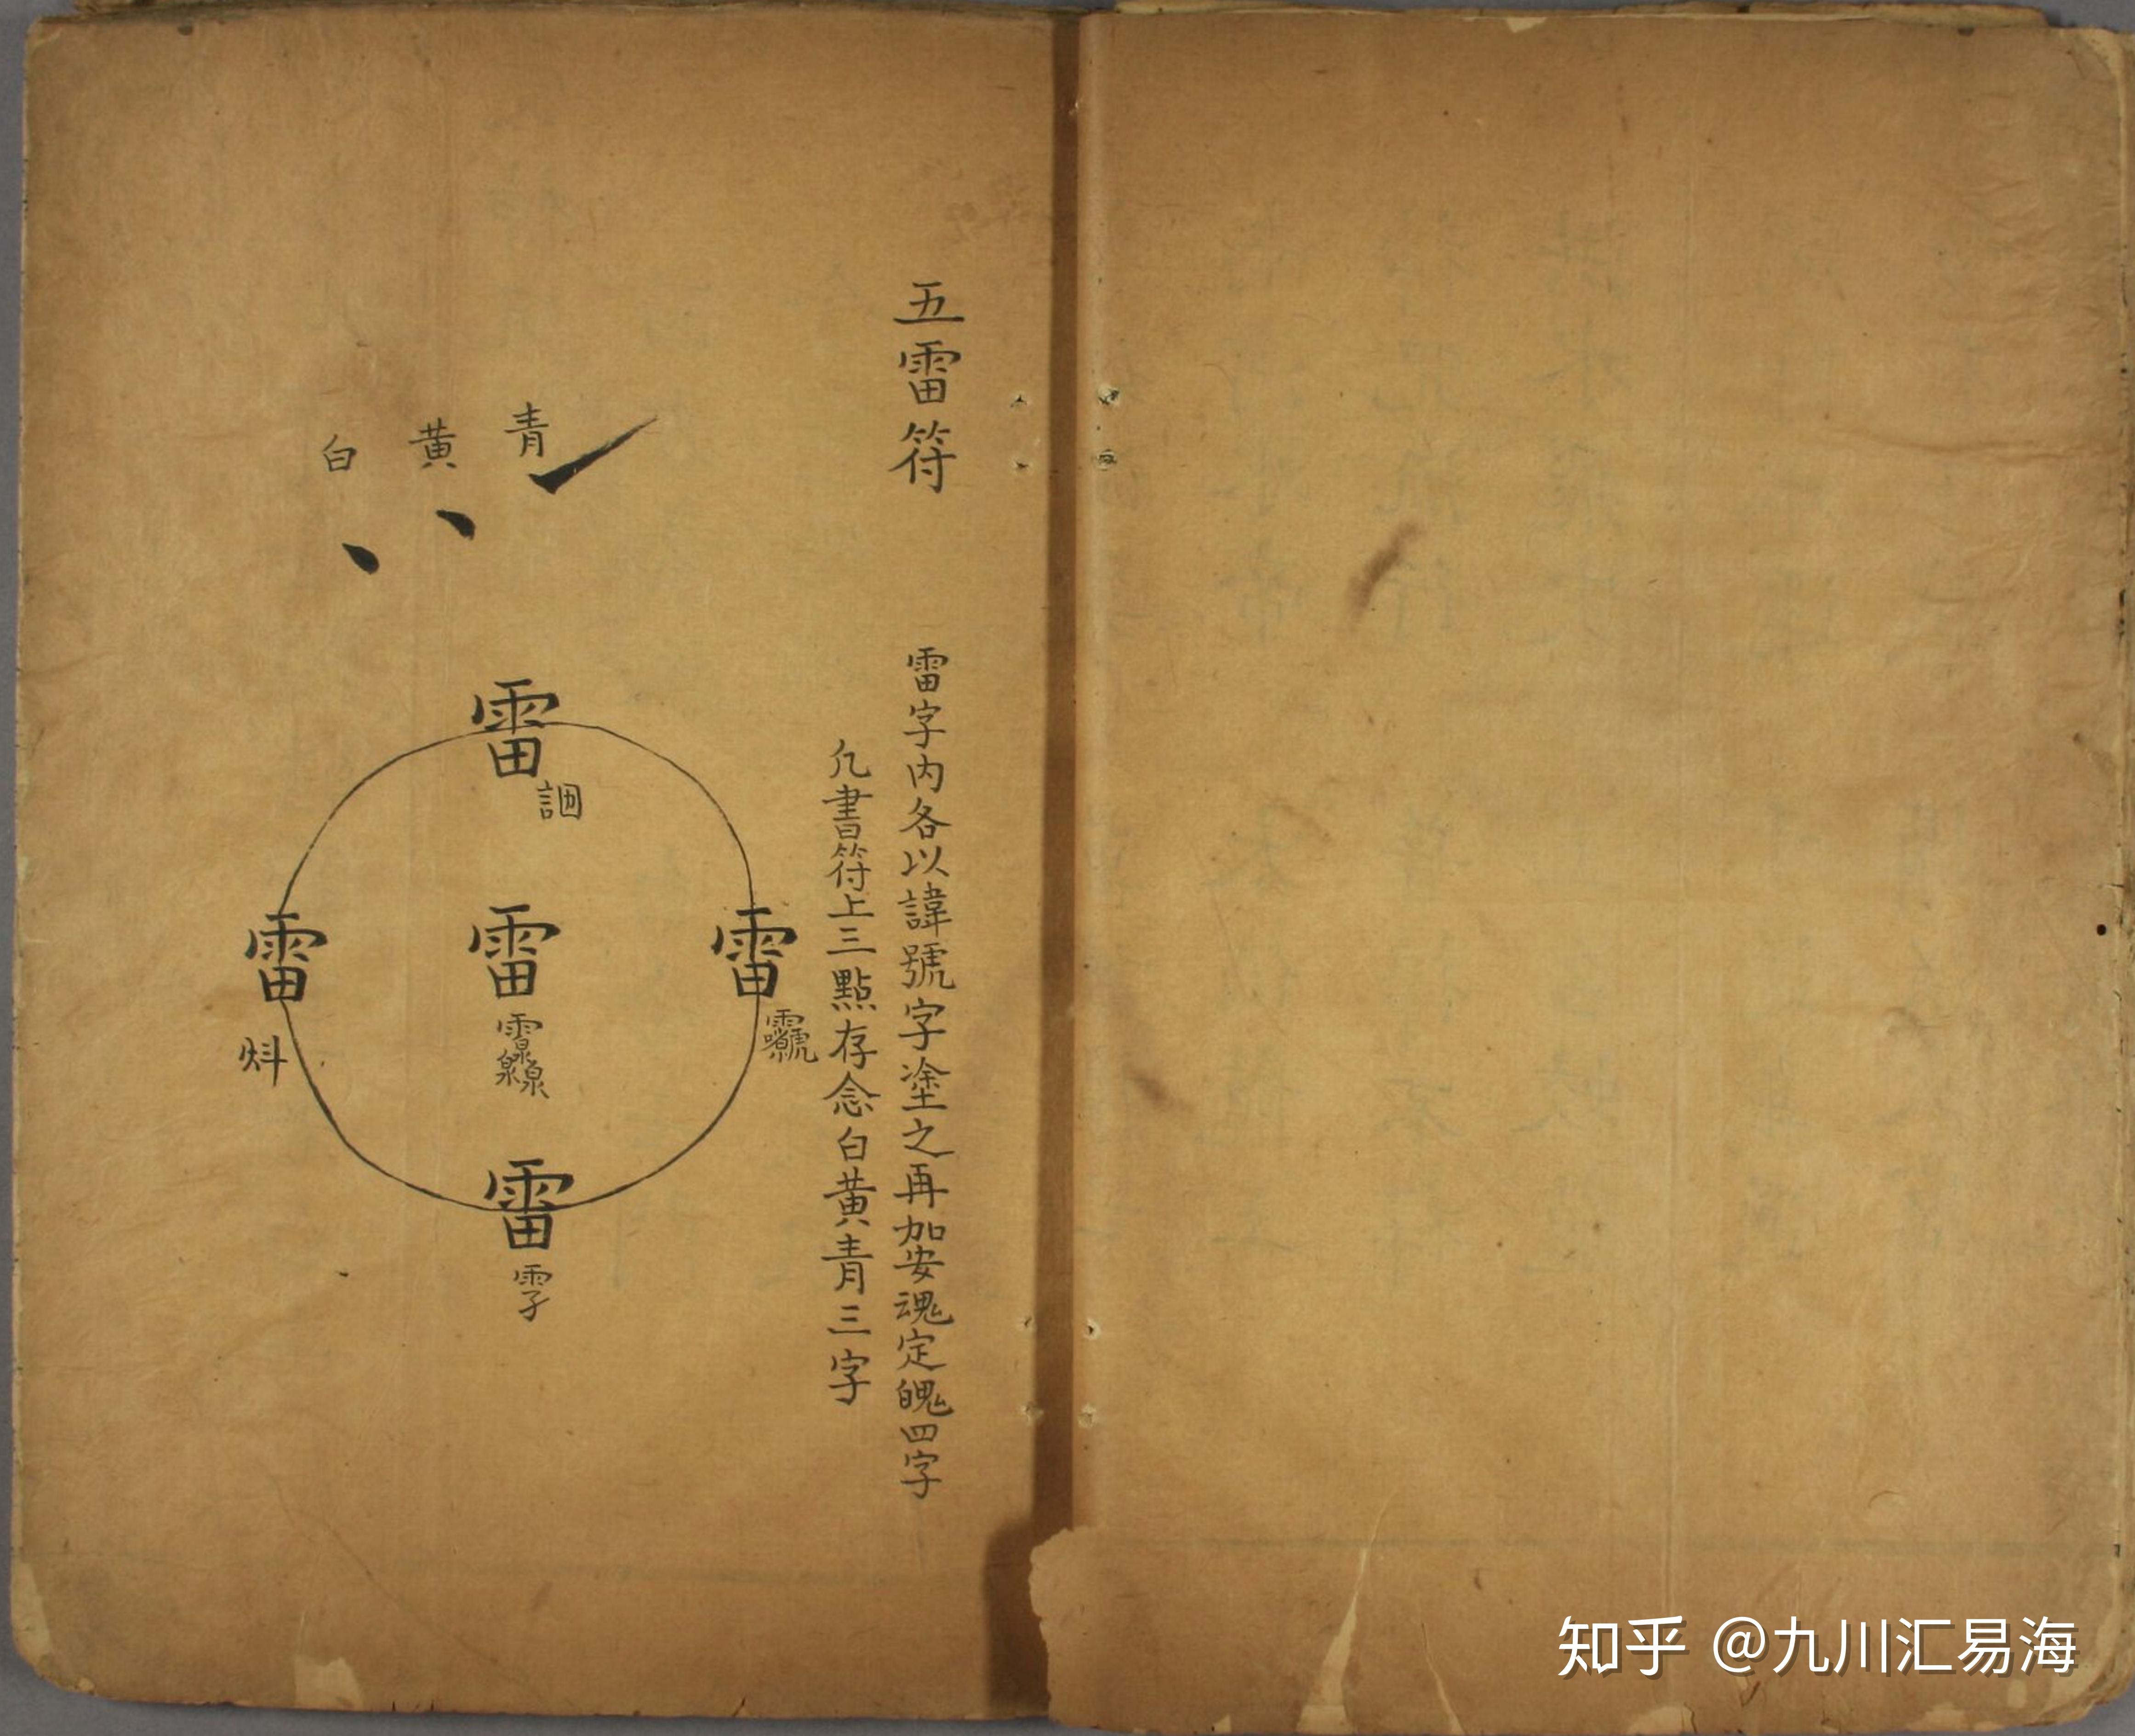 五雷符
雷字内各以諱號字塗之再加安魂定魄四字
凢書符上三點存念白黄青三字
青
黄
白
雷
雷
雷
雷
雷
知乎 @九川汇易海